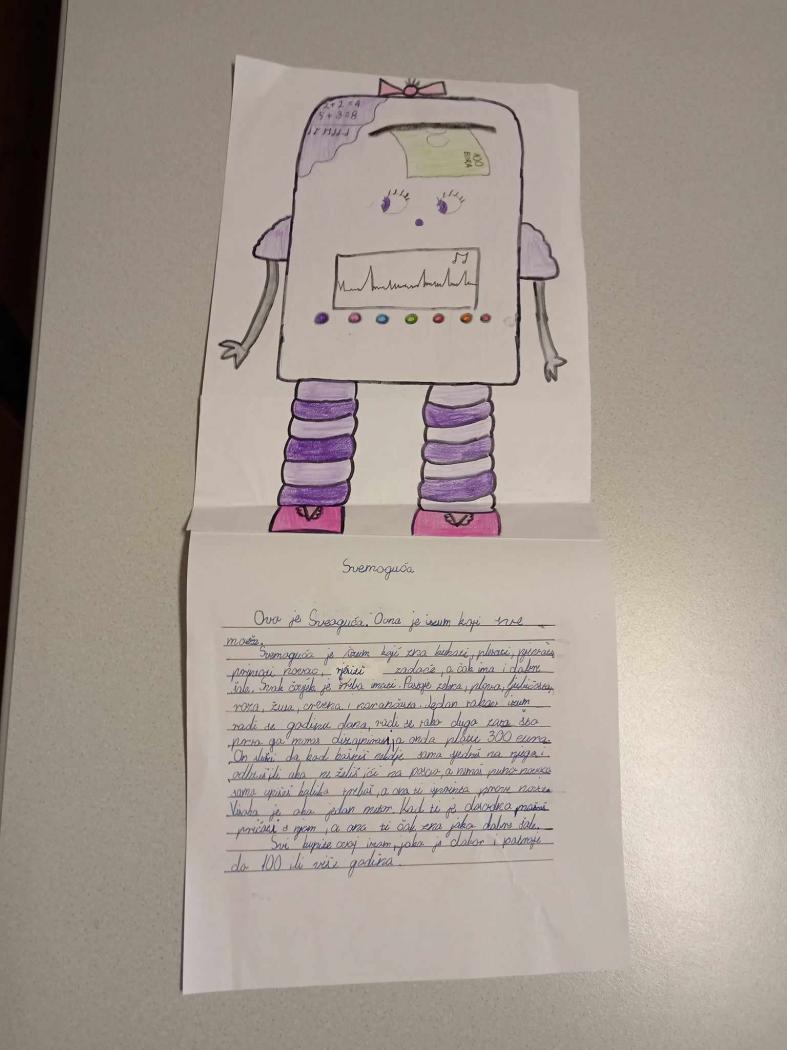 2+2=4
5+3=8
100
EURA
Svemoguća
Ovo je Svemoguća. Ovna je izum koji sve
može.
Svemoguća je izum koji zna kuhati, plesati, pjevati,
primiati novac, rješiti zadaće, a čak ima i dobre
šale. Svak čovjek je treba imati. Postoje zelena, plava, ljubičasta,
roza, žuta, crvena i narančasta. Jedan takav izum
radi se godinu dana, radi se tako dugo zato što
prvo ga moraš dizajnirati, a onda platiti 300 euna.
On služi da kad baš ideš negdje samo sjedneš na njega i
odletiš ili ako ne želiš ići na posao, a nemaš puno novaca
samo upišeš koliko trebaš, a ona ti isprinta prave novce.
Visoka je oko jedan metar. Kad ti je dosadno možeš
pričati s njom, a ona ti čak zna jako dobre šale.
Svi kupite ovaj izum, jako je dobar i potraje
do 100 ili više godina.